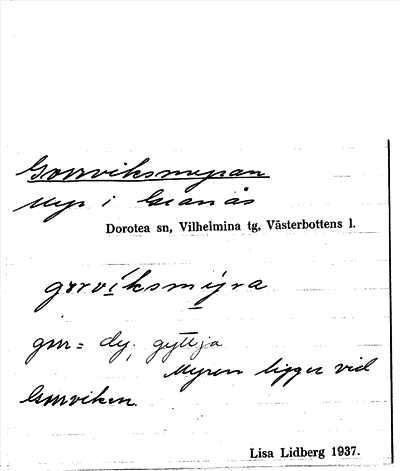 Gorrviksmyran
Myr i Granås
Dorotea sn, Vilhelmina tg, Västerbottens l.
gorrvíksmýra
gorr = dy, gyttja
Myren ligger vid
Gorrviken.
Lisa Lidberg 1937.